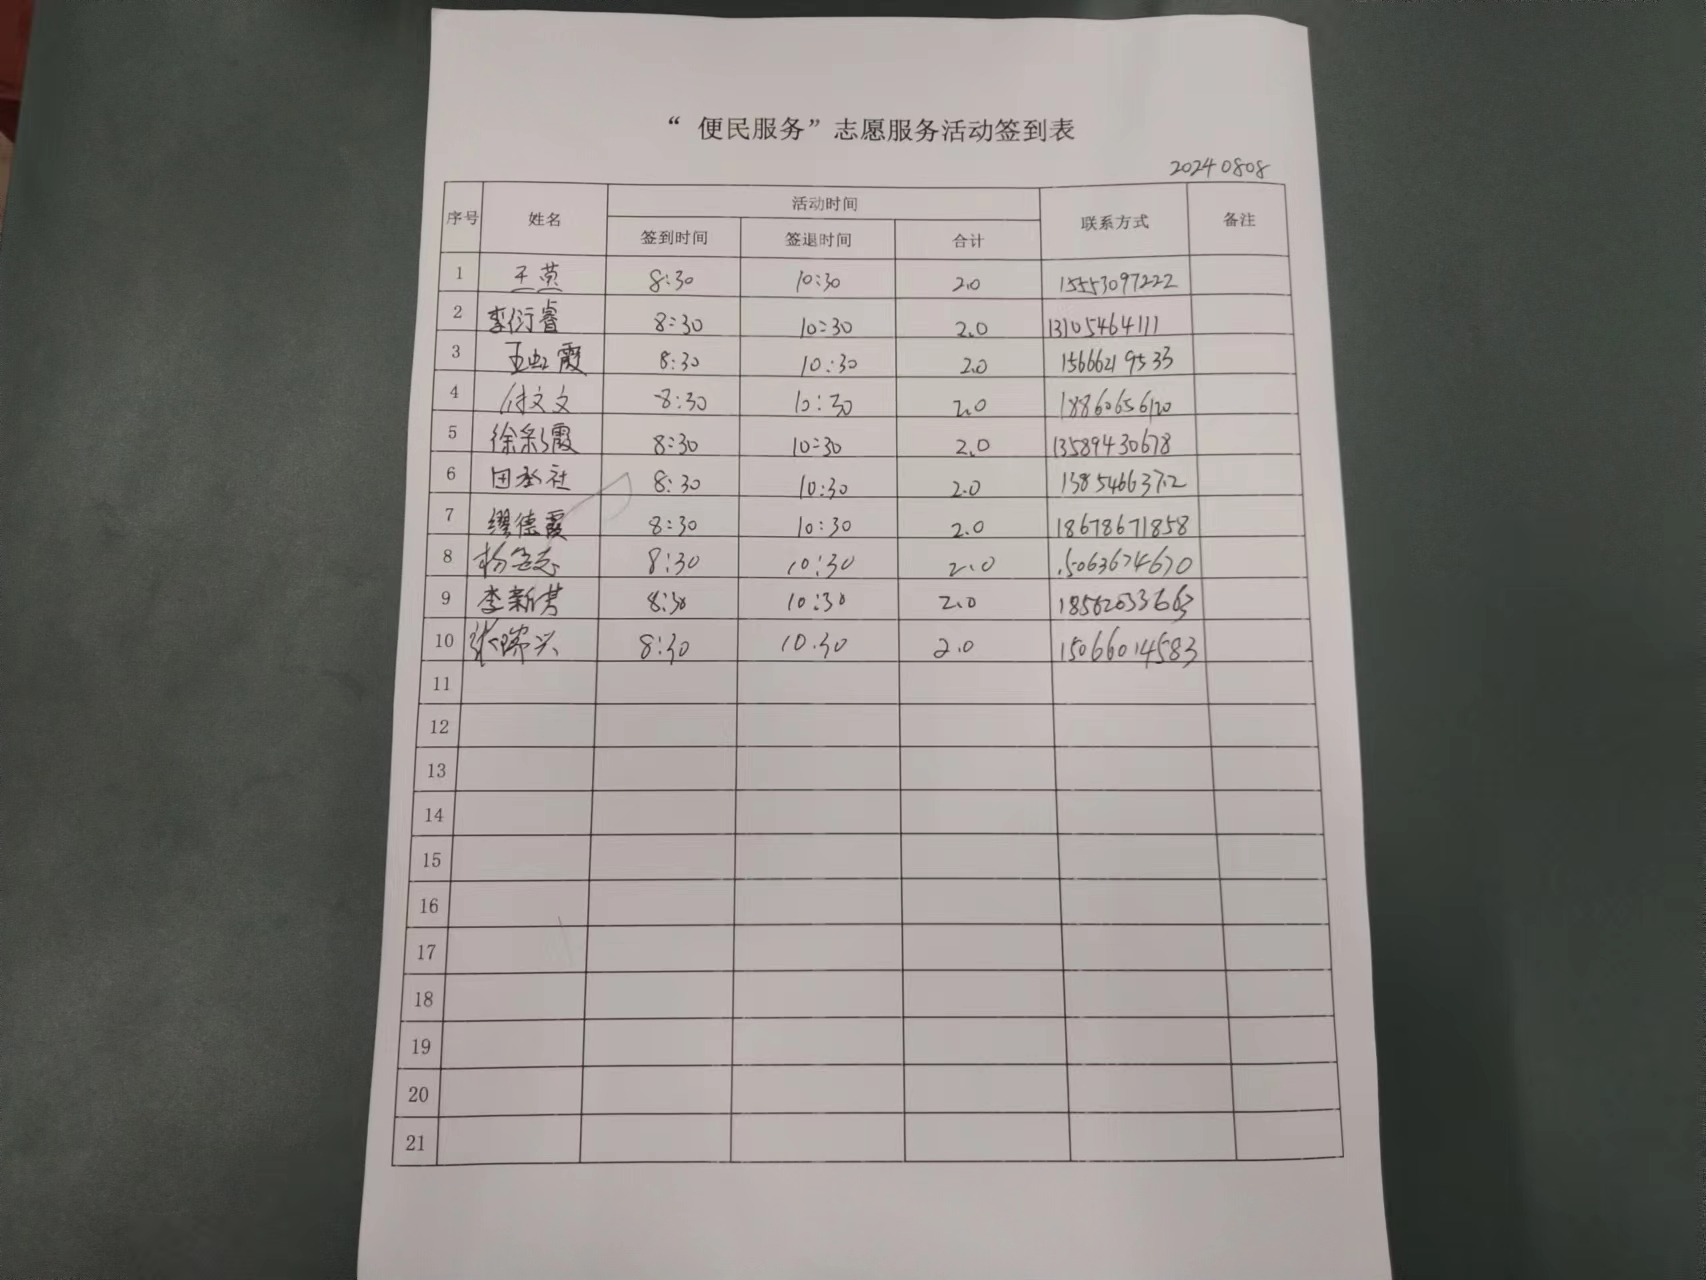 “ 便民服务”志愿服务活动签到表
20240808
序号 姓名 活动时间 联系方式 备注
签到时间 签退时间 合计
1 王英 8:30 10:30 2.0 15553097222
2 李衍睿 8:30 10:30 2.0 13105464111
3 王虹霞 8:30 10:30 2.0 15666219533
4 付文文 8:30 10:30 2.0 18860656120
5 徐彩霞 8:30 10:30 2.0 13589430678
6 田 社 8:30 10:30 2.0 13854663712
7 缪德霞 8:30 10:30 2.0 18678671858
8 杨 志 8:30 10:30 2.0
9 李新 8:30 10:30 2.0
10 张瑞兴 8:30 10.30 2.0 15066014583
11
12
13
14
15
16
17
18
19
20
21